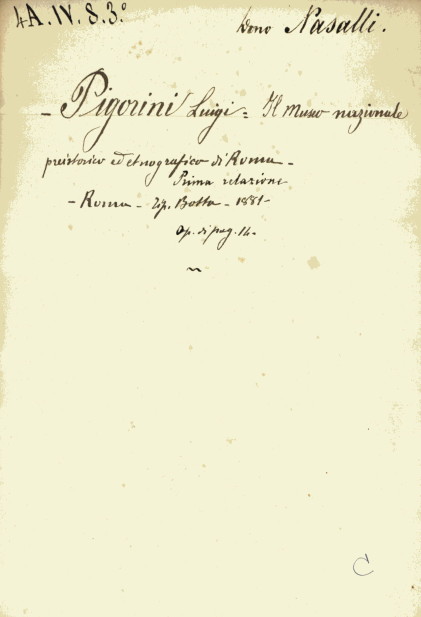 4A.IV.8.3.°
Dono Nasalli.
- Pigorini Luigi = Il Museo nazionale
preistorico ed etnografico di Roma -
Prima relazione
- Roma - Tip. Botta - 1881 -
Op. di pag. 14 -
~
C